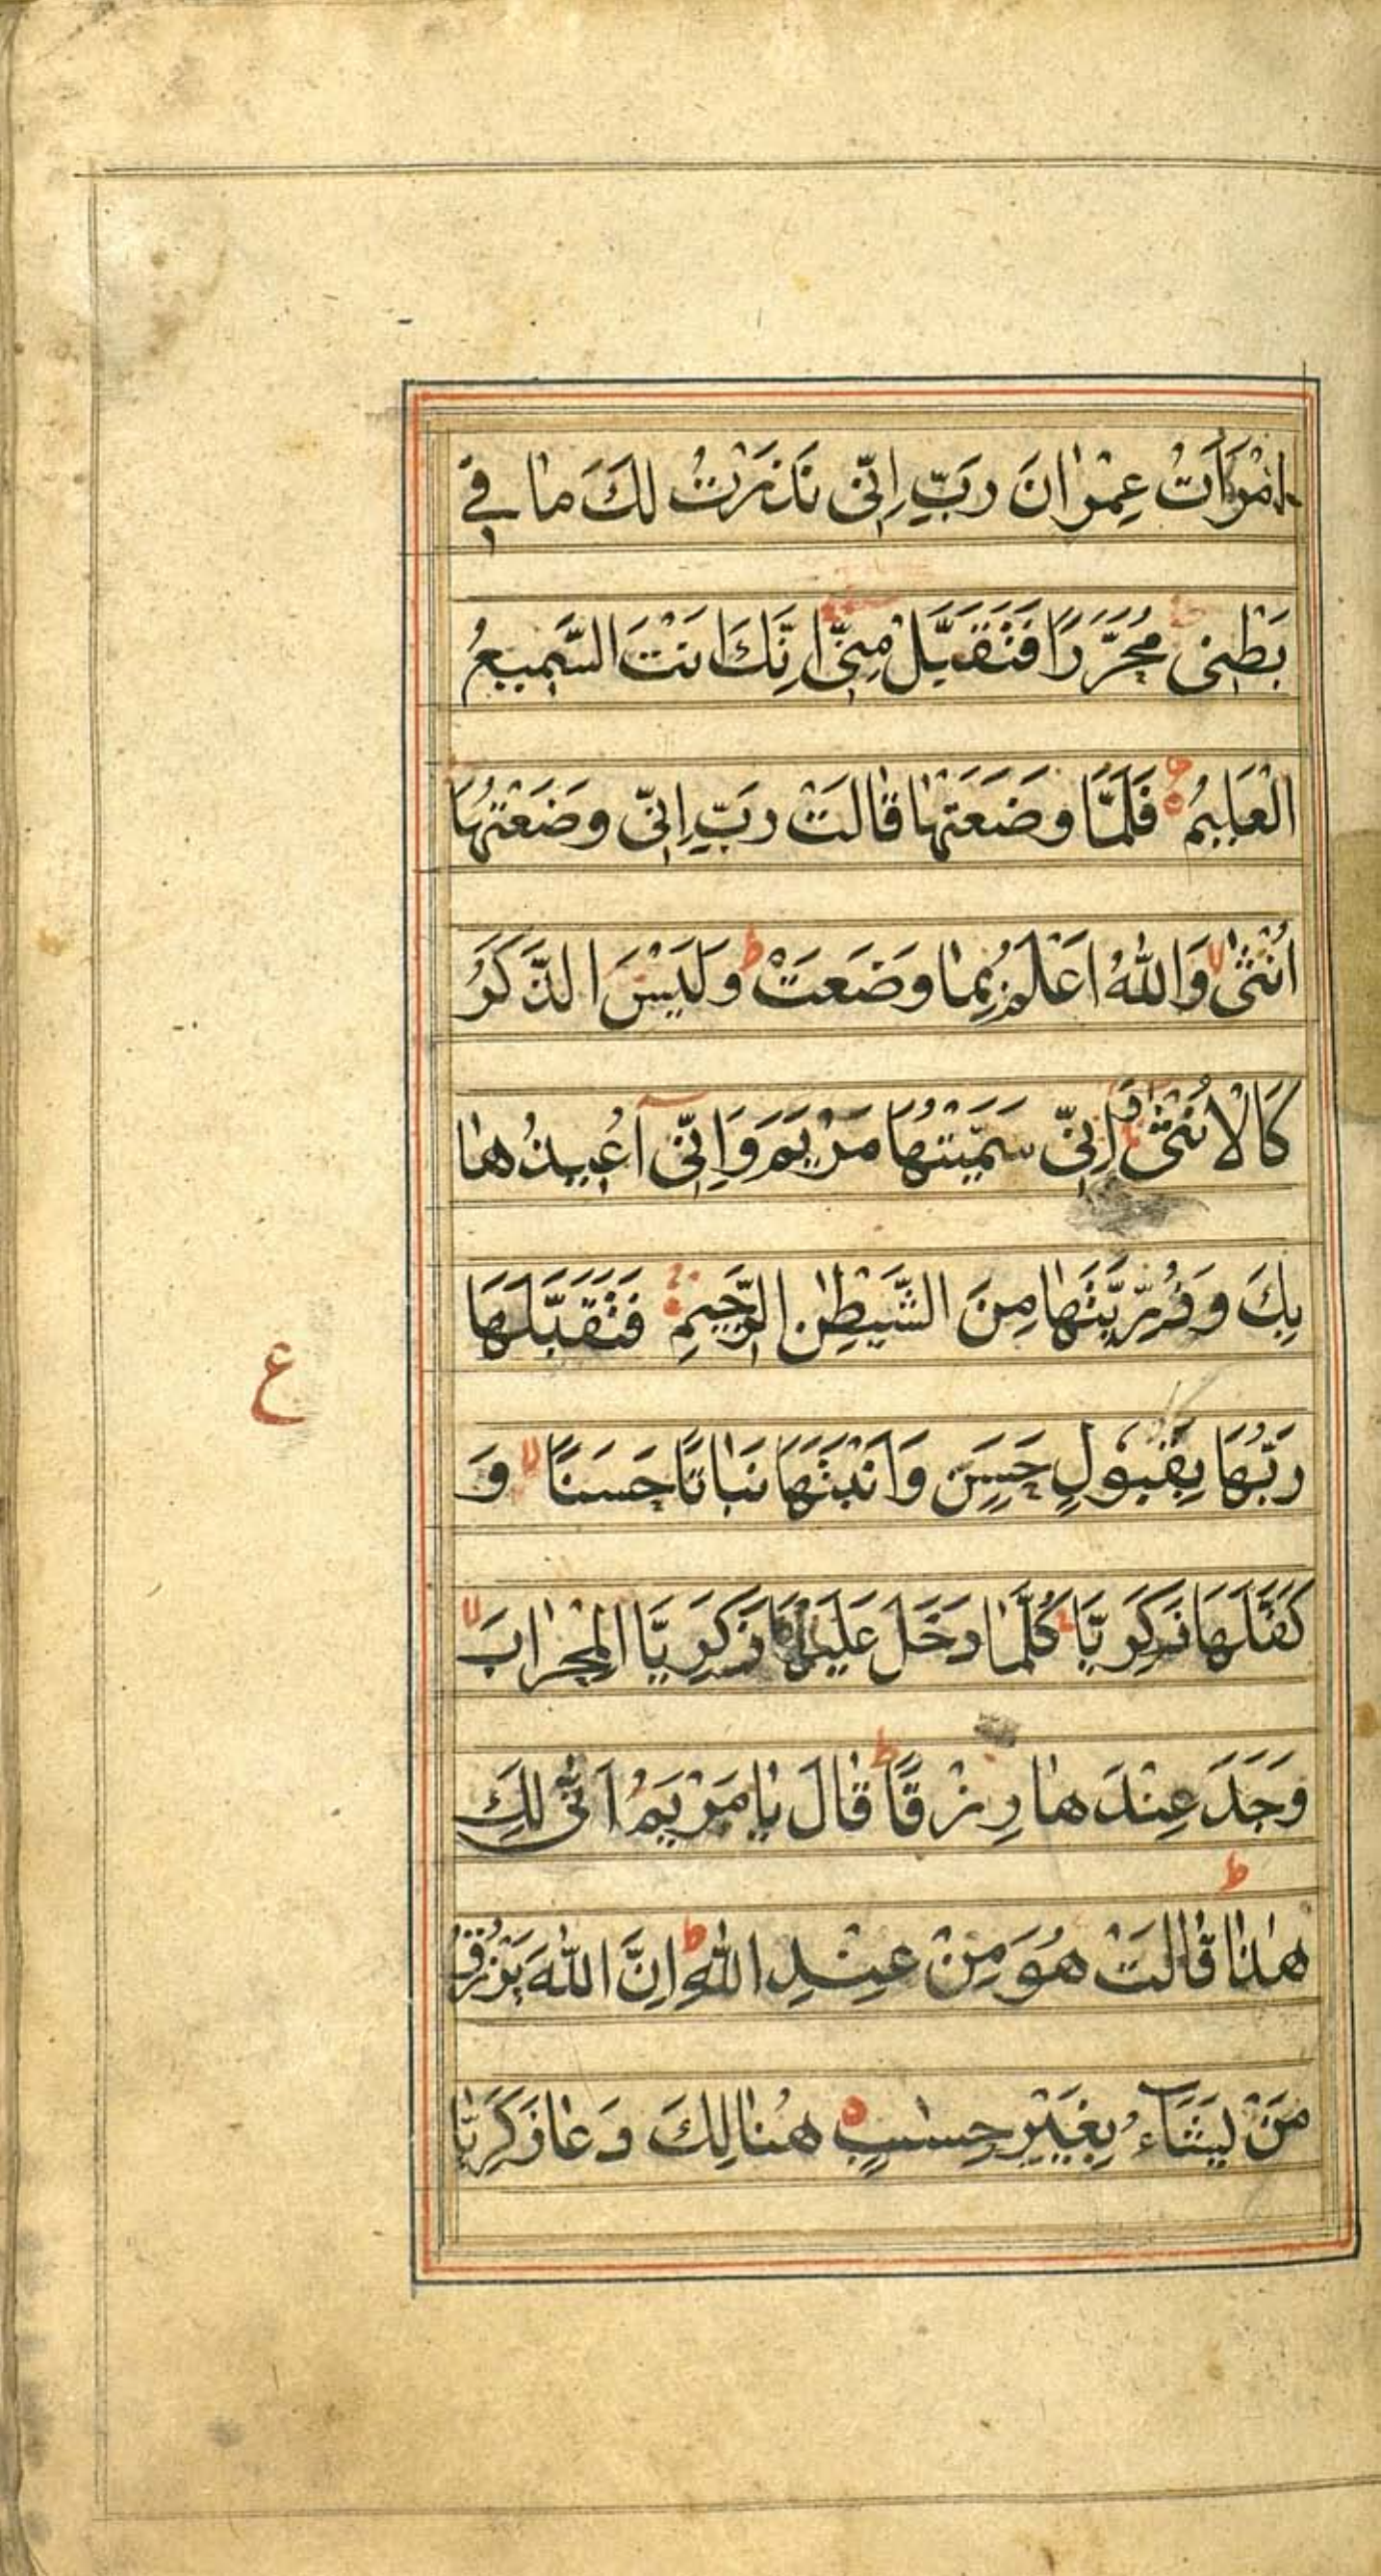 امْرَاَتُ عِمْرٰانَ رَبِّ اِنّٖى نَذَرْتُ لَكَ مٰا فٖى
بَطْنٖى مُحَرَّرًا فَتَقَبَّلْ مِنّٖى اِنَّكَ اَنْتَ السَّمٖيعُ
الْعَلٖيمُ فَلَمَّا وَضَعَتْهٰا قٰالَتْ رَبِّ اِنّٖى وَضَعْتُهَا
اُنْثٰى لا وَاللّٰهُ اَعْلَمُ بِمٰا وَضَعَتْ ط وَلَيْسَ الذَّكَرُ
كَالْاُنْثٰى وَ اِنّٖى سَمَّيْتُهَا مَرْيَمَ وَاِنّٖى اُعٖيذُهٰا
بِكَ وَذُرِّيَّتَهٰا مِنَ الشَّيْطٰنِ الرَّجٖيمِ فَتَقَبَّلَهَا
رَبُّهَا بِقَبُولٍ حَسَنٍ وَاَنْبَتَهَا نَبٰاتًا حَسَنًا لا وَ
كَفَّلَهَا زَكَرِيَّا ط كُلَّمٰا دَخَلَ عَلَيْهَا زَكَرِيَّا الْمِحْرٰابَ لا
وَجَدَ عِنْدَهٰا رِزْقًا ط قٰالَ يٰا مَرْيَمُ اَنّٰى لَكِ
هٰذٰا ط قٰالَتْ هُوَ مِنْ عِنْدِ اللّٰهِ ط اِنَّ اللّٰهَ يَرْزُقُ
مَنْ يَشَاءُ بِغَيْرِ حِسٰابٍ هُنٰالِكَ دَعٰا زَكَرِيّٰا
ع